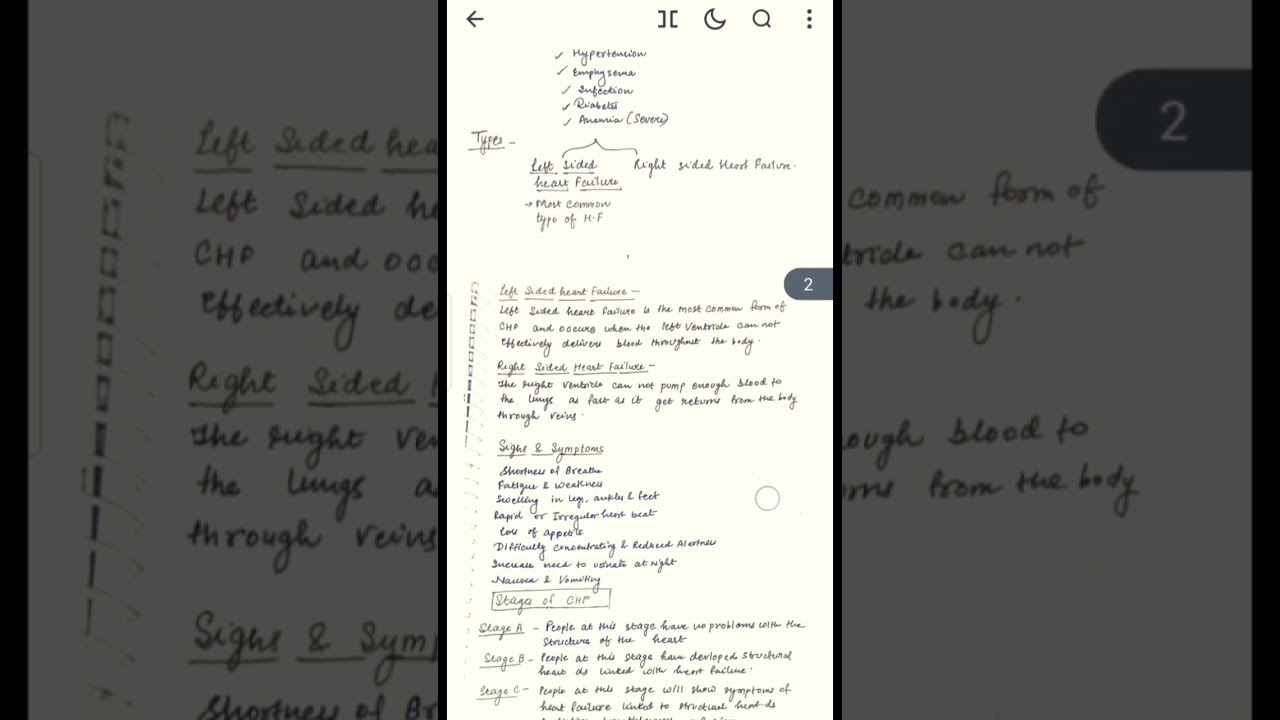 Hypertension
Emphysema
Infection
Diabetes
Anemia (Severe)
Types -
Left Sided Right sided Heart Failure.
heart Failure
→ Most Common
type of H.F
2
Left Sided heart Failure -
Left Sided heart failure is the most common form of
CHF and occurs when the left Ventricle can not
Effectively delivers blood throughout the body.
Right Sided Heart Failure -
The right Ventricle can not pump enough blood to
the lungs as fast as it get returns from the body
through veins.
Sighs & Symptoms
Shortness of Breathe
Fatigue & Weakness
Swelling in legs, ankles & feet
Rapid or Irregular heart beat
loss of appetite
Difficulty Concentrating & Reduced Alertness
Increase need to urinate at Night
Nausea & Vomiting
Stages of CHF
Stage A - People at this stage have no problems with the
structure of the heart
Stage B - People at this stage have devloped structural
heart ds linked with heart failure.
Stage C - People at this stage will show symptoms of
heart failure linked to structual heart ds